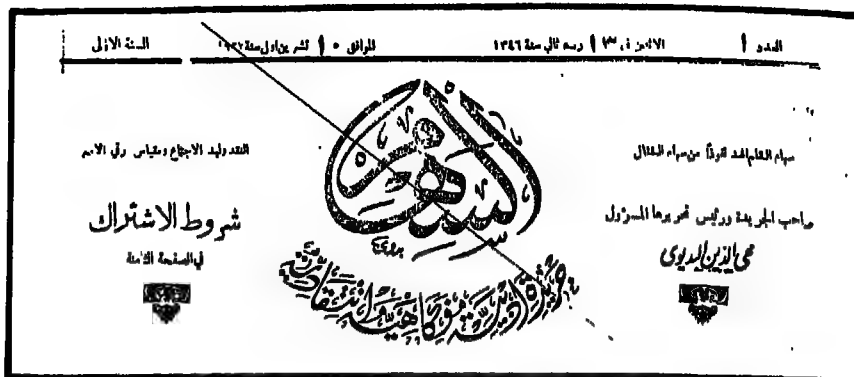 العدد ١ الاثنين في ١٣ ربيع ثاني سنة ١٣٤٦ الموافق ١٠ تشرين اول سنة ١٩٢٧ السنة الاولى
سهام القلم احد نفوذًا من سهام القتال
صاحب الجريدة ورئيس تحريرها المسؤول
محي الدين البديوي
السهام
جريدة ادبية فكاهية انتقادية
النقد وليد الاجتماع ومقياس رقي الامم
شروط الاشتراك
في الصفحة الثامنة